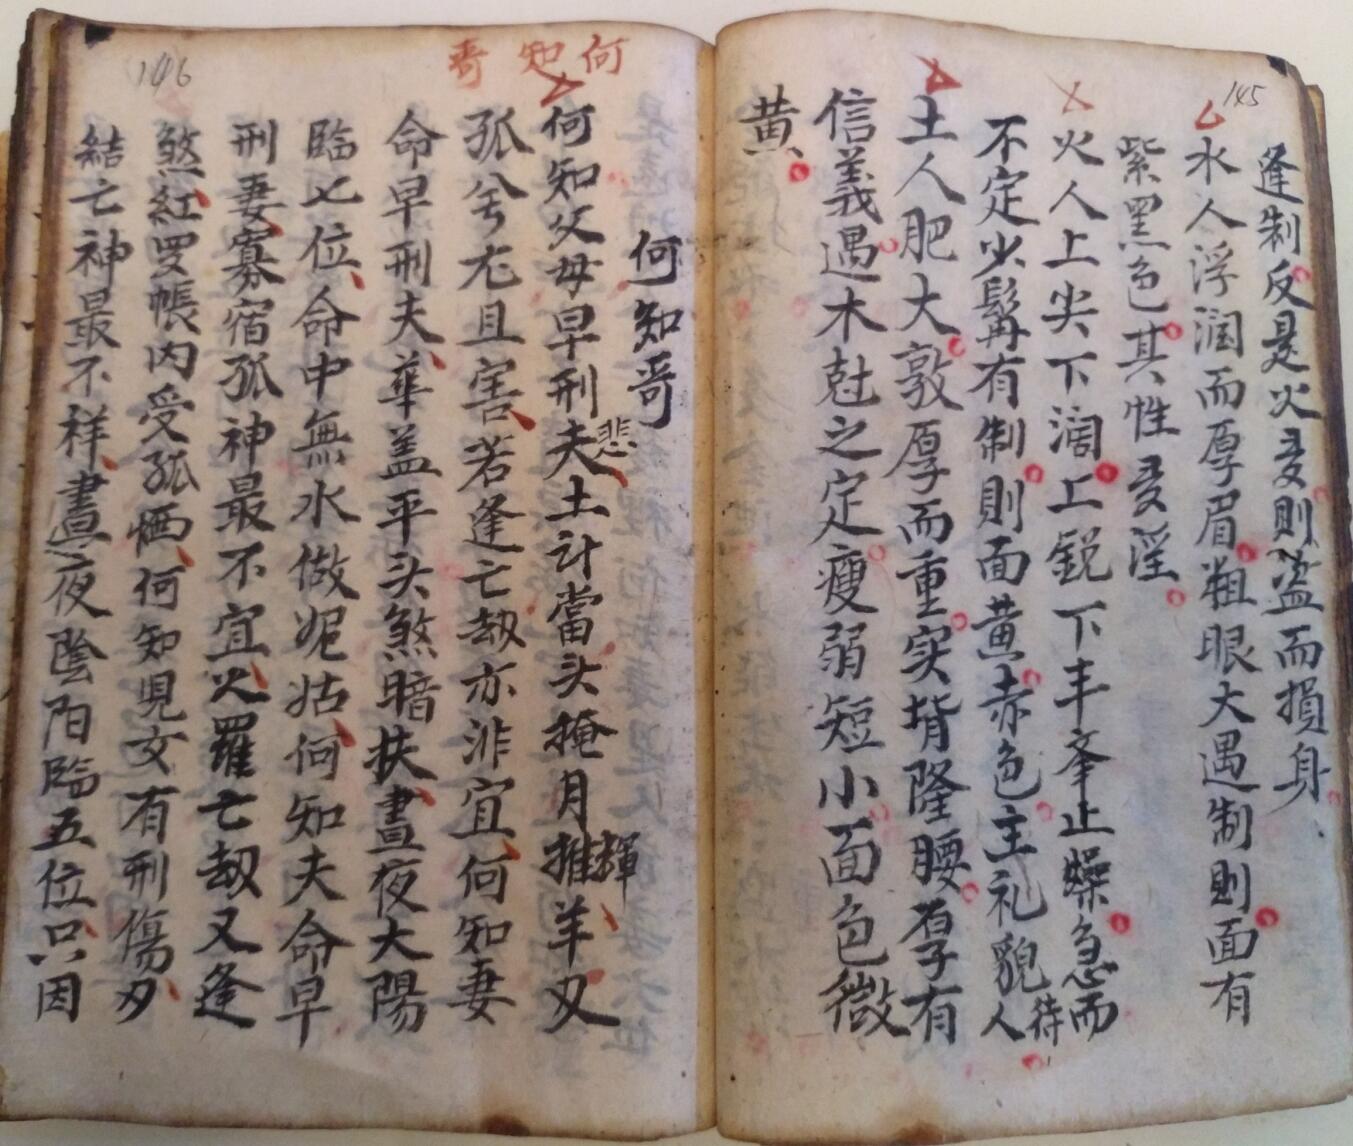 145
逢制反是火多則盗而損身
水人浮润而厚眉粗眼大遇制則面有
紫黑色其性多淫
火人上尖下濶上鋭下丰夆止燥急而
不定少髯有制則面黄赤色主礼貌待人
土人肥大敦厚而重实背隆腰厚有
信義遇木尅之定瘦弱短小面色微
黄
146
何知哥
何知哥
何知父母早刑夫悲土計當头掩月輝推羊刃
孤兮尤且害若逢亡劫亦非宜何知妻
命早刑夫華盖平头煞暗扶晝夜太陽
臨七位命中無水做妮姑何知夫命早
刑妻寡宿孤神最不宜火羅亡劫又逢
煞紅罗帳内受孤恓何知児女有刑傷刃
結亡神最不祥晝夜陰阳臨五位只因